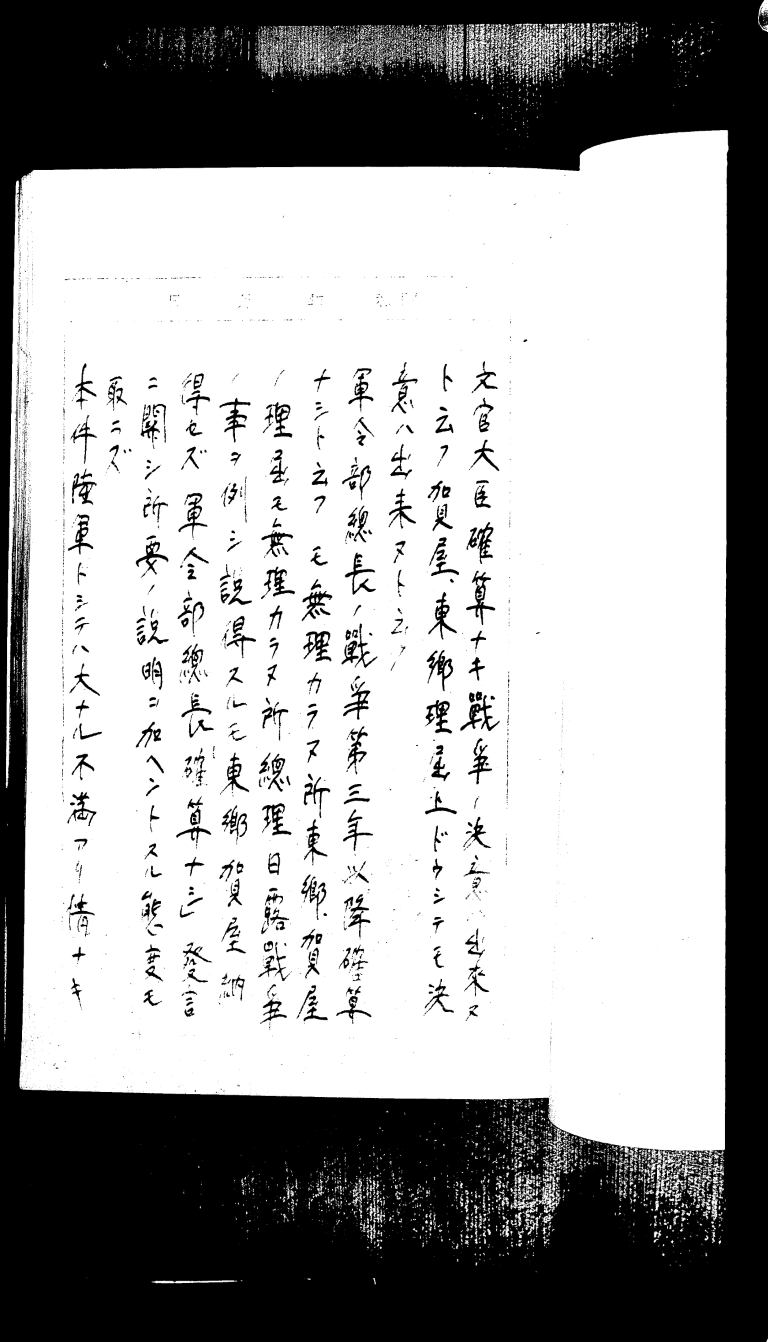 文官大臣確算ナキ戰爭ノ決意ハ出來ヌ
ト云フ賀屋、東郷理屈上ドウシテモ決
意ハ出来ヌト云フ
軍令部總長ノ戰爭第三年以降確算
ナシト云フ モ無理カラヌ所東郷、賀屋
ノ理屈モ無理カラヌ所總理日露戰爭
ノ事ヲ例シ説得スルモ東郷賀屋納
得セズ 軍令部總長「確算ナシ」發言
ニ關シ所要ノ説明ヲ加ヘントスル態度モ
取ラズ
本件陸軍トシテハ大ナル不満アリ情ナキ